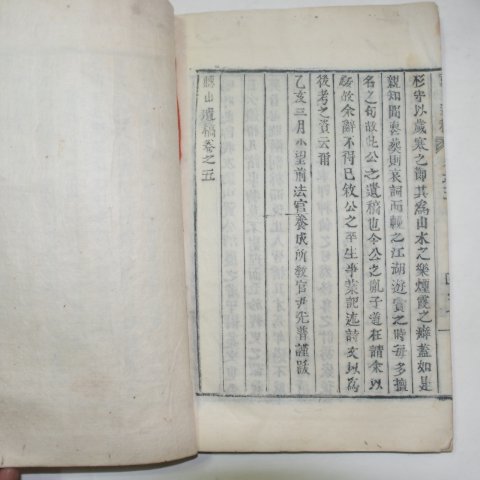 杉守以歲寒之節其爲山水之樂煙霞之癖蓋如是
親知間喪葬則哀詞而輓之江湖遊賞之時每多擅
名之句故此公之遺稿也令公之胤子道在請余以
跋故余辭不得已敘公之平生事業記述詩文以爲
後考之資云爾
乙亥三月小望前法官養成所敎官尹先普謹跋
聽山遺稿卷之五